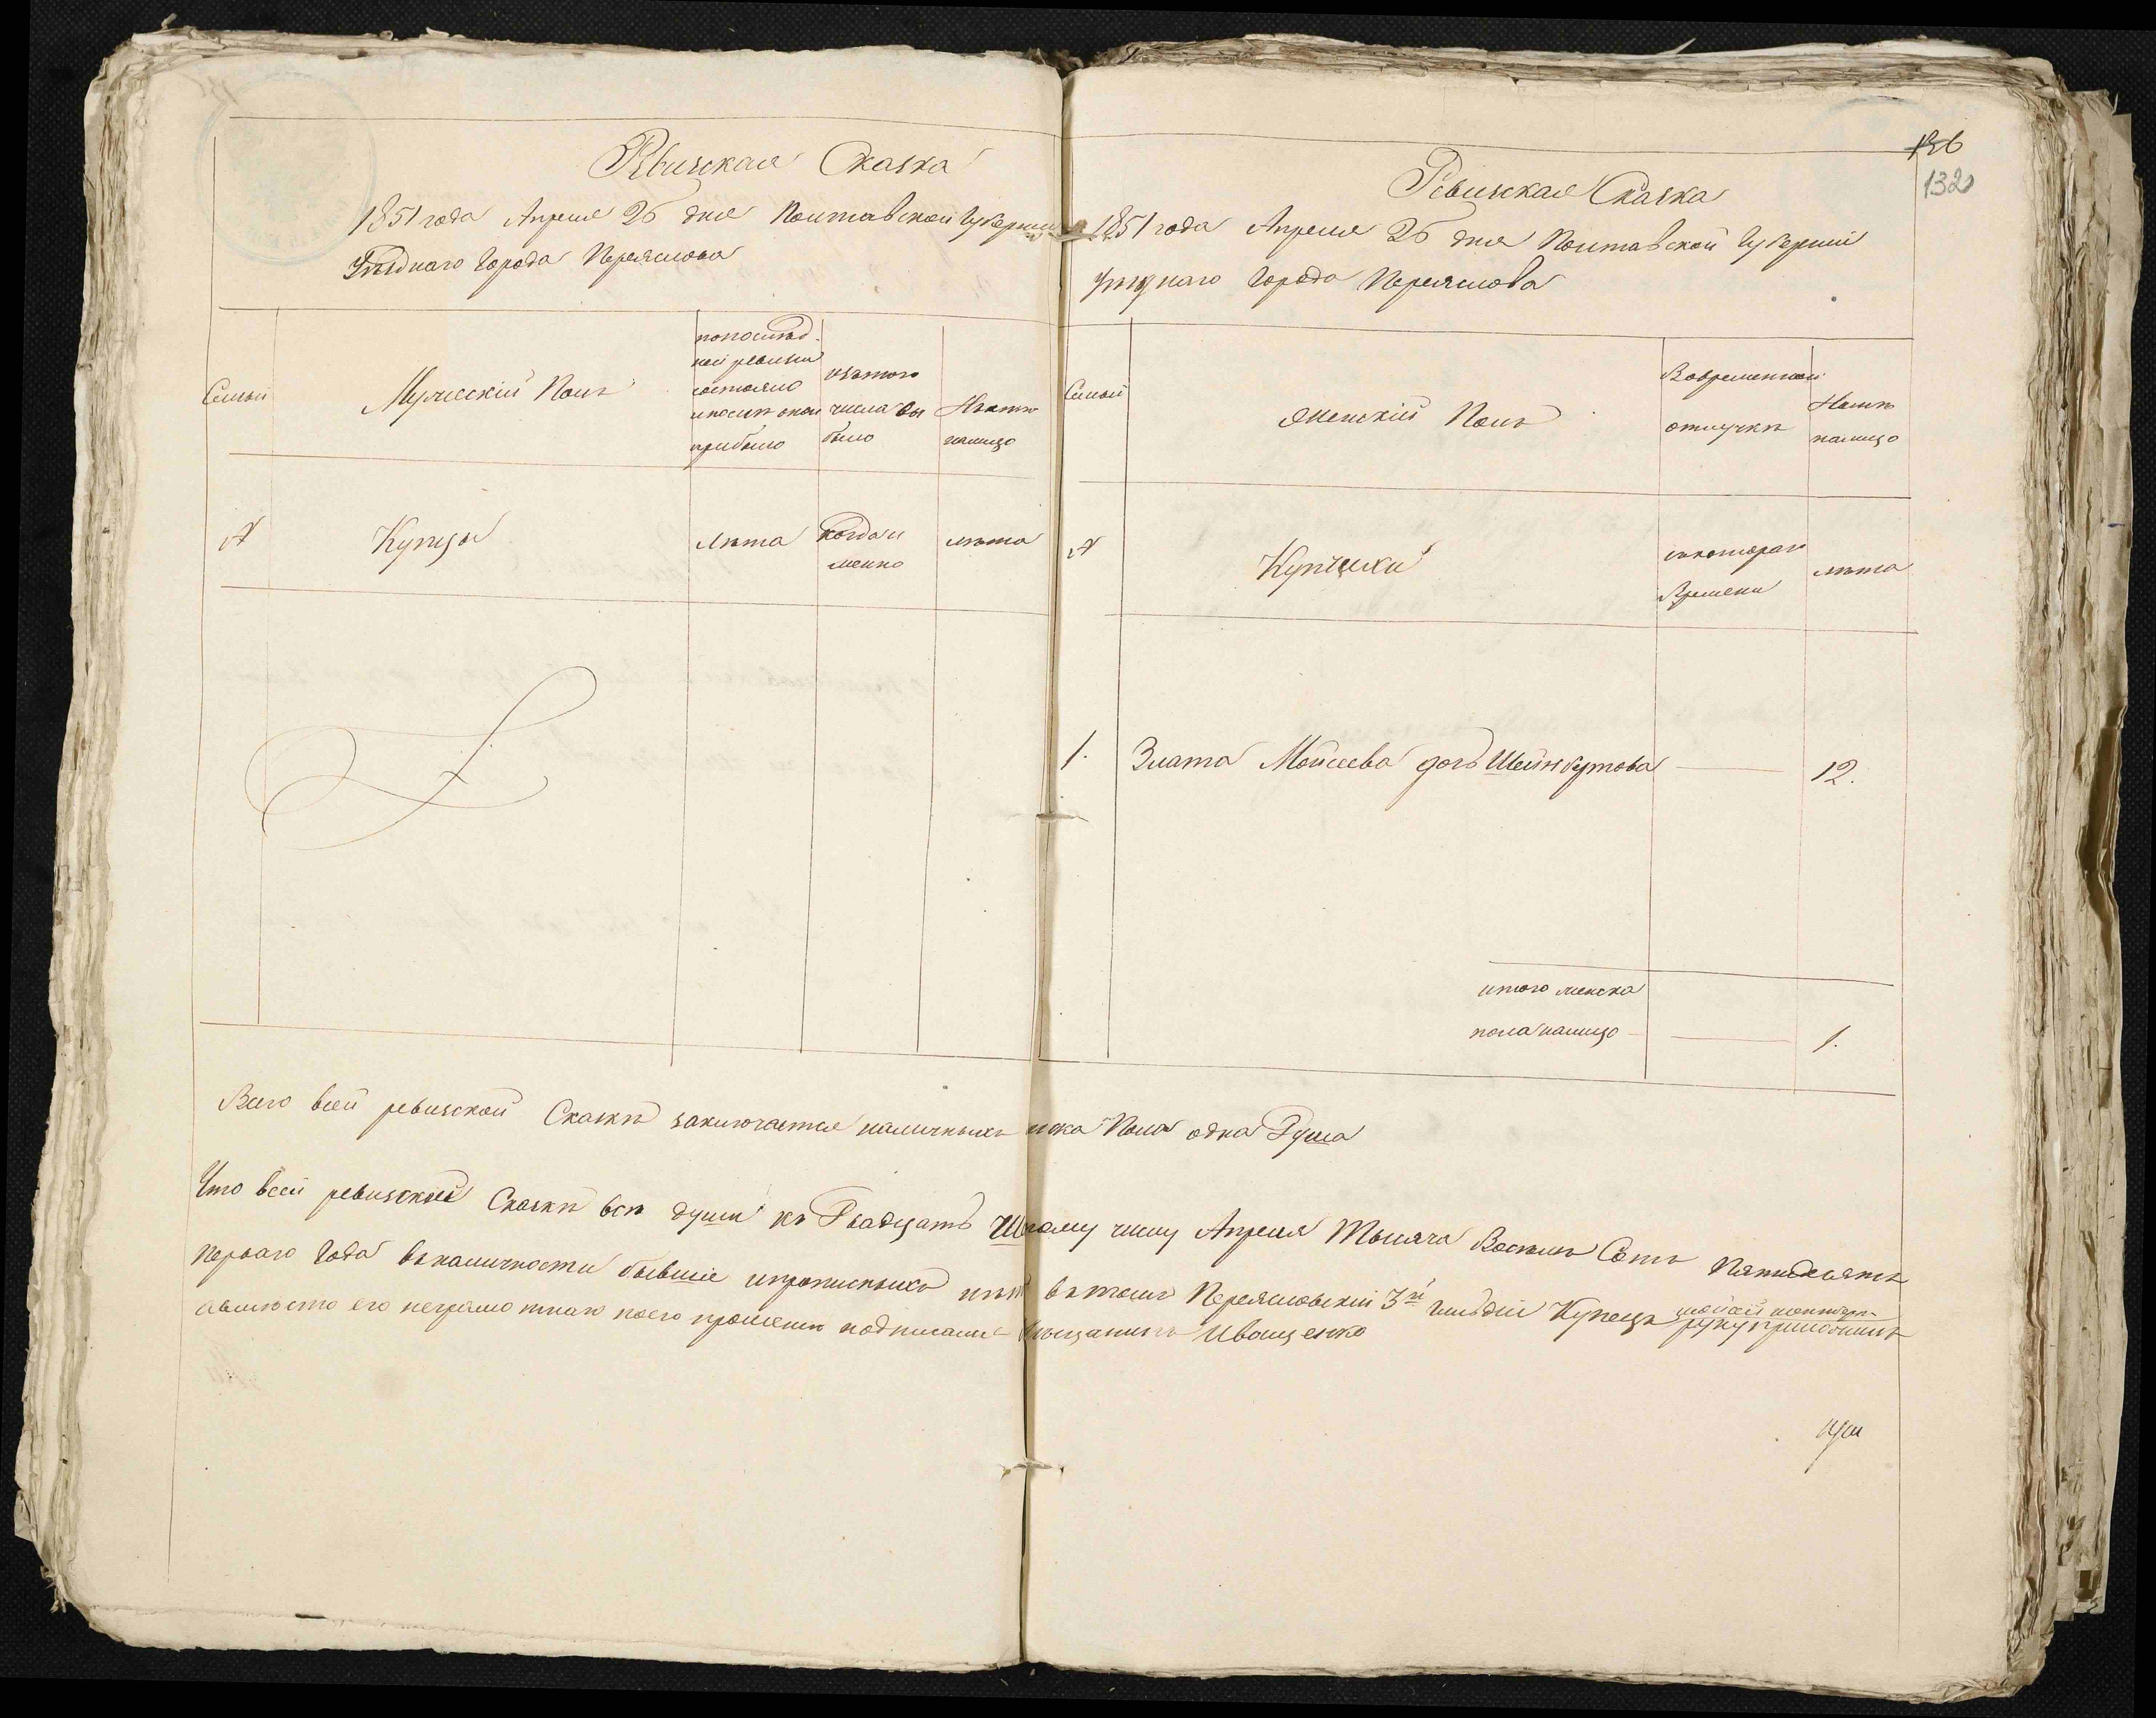 Ревизская Сказка
1851 года Апреля 26 дня Полтавской Губернии
Уѣзднаго Города Переяслова
Семьи
Мужескій Полъ
попослѣд.
ней ревизіи
состояло
и послѣ оной
прибыло
изътого
числа вы
было
Нынѣ
налицо
№
Купцы
Лѣта
когда и
менно
лѣта
136
132
Ревизская Сказка
1851 года Апреля 26 дня Полтавской Губерніи
Уѣзднаго Города Переяслова
Семьи
Женскій Полъ
Вовременной
отлучкѣ
Нынѣ
налицо
№
Купчихи
съкотораго
Времени
лѣта
1. Злата Мойсеева дочь Шейнбутова 12.
итого женска
пола налицо 1.
Всего всей ревизской Сказкѣ заключается наличныхъ женска Пола одна Душа
Что всей ревизской Сказкѣ всѣ души къ Двадцать Шестому числу Апреля Тысяча Восемь Сотъ Пятьдесятъ
перваго Года въналичности бывшіе ипрописныхъ нѣтъ вътомъ Переясловскій 3й гильдіи Купецъ
авмѣсто его неграмотнаго поего прошенію подписался Мѣщанинъ Иващенко руку приложилъ